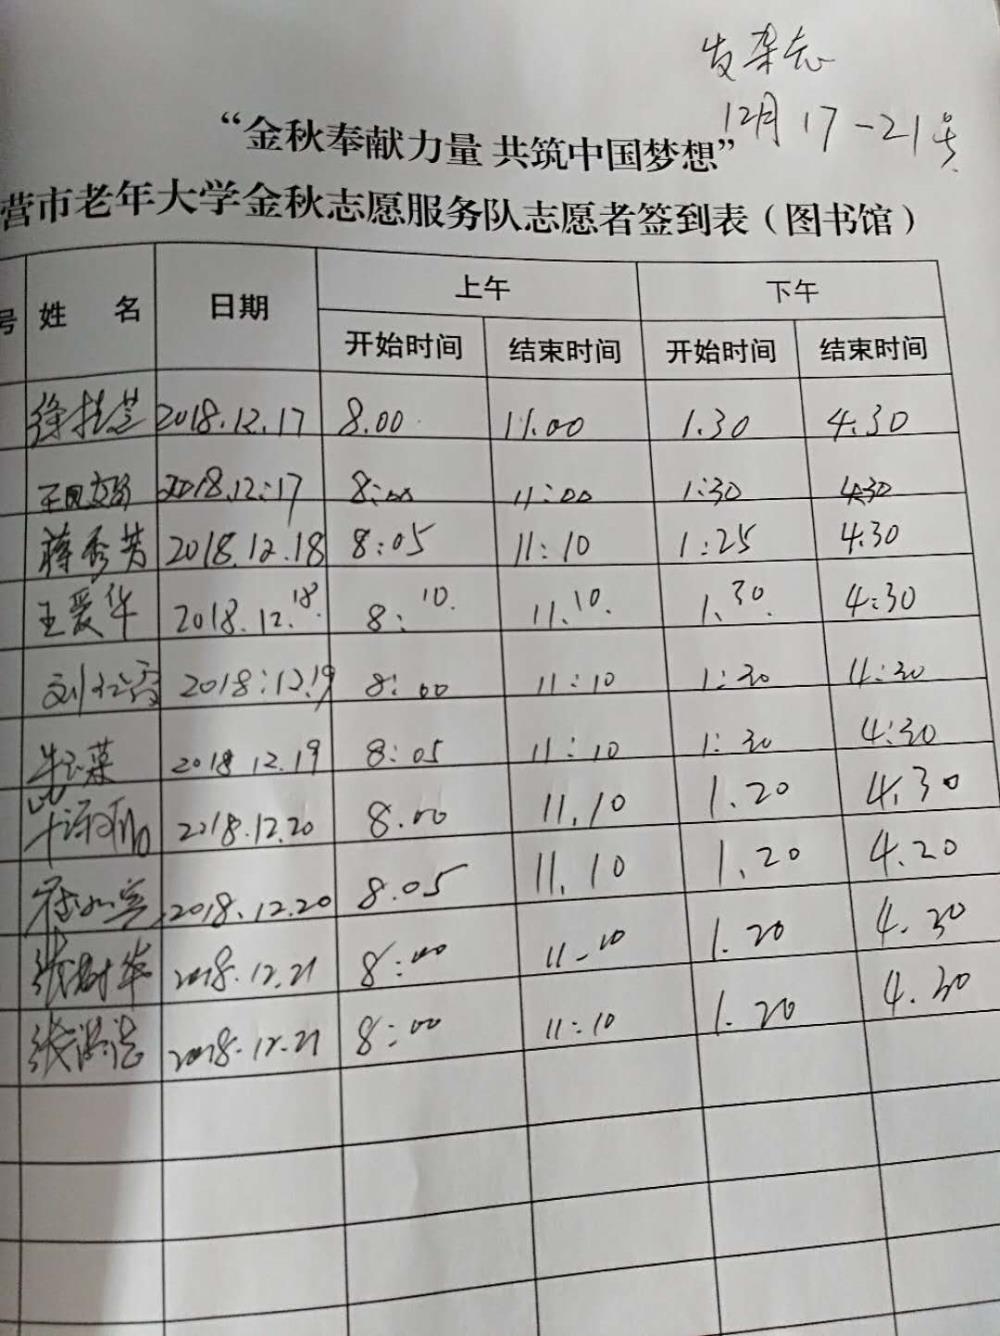 发杂志
12月17-21号
“金秋奉献力量 共筑中国梦想”
营市老年大学金秋志愿服务队志愿者签到表（图书馆）
号 姓 名 日期 上午 下午
开始时间 结束时间 开始时间 结束时间
徐桂兰 2018.12.17 8.00 11.00 1.30 4.30
2018.12:17 8:00 11:00 1:30 4:30
蒋秀芳 2018.12.18 8:05 11:10 1:25 4:30
王爱华 2018.12.18 8:10 11.10. 1.30. 4:30
刘仁霞 2018:12.19 8:00 11:10 1:30 4:30
2018.12.19 8:05 11:10 1:30 4:30
2018.12.20 8.00 11.10 1.20 4.30
2018.12.20 8.05 11.10 1.20 4.20
张树华 2018.12.21 8:00 11-10 1.20 4.30
张 2018.12.21 8:00 11:10 1.20 4.30